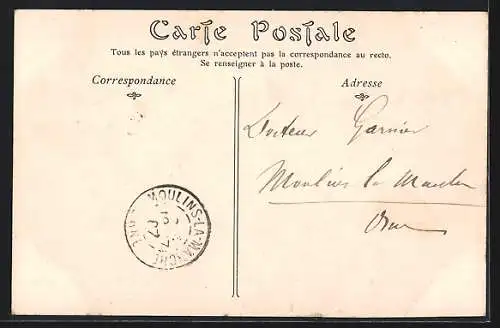 Carte Postale
Tous les pays étrangers n'acceptent pas la correspondance au recto.
Se renseigner à la poste.
Correspondance
Adresse
Docteur Garnier
Moulins la Marche
Orne
MOULINS-LA-MARCHE
ORNE